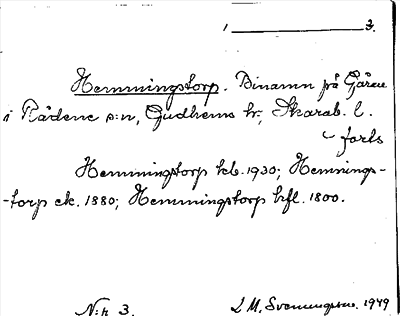 1 3.
Hemmingstorp. Binamn på Gåren
i Rådene s:n, Gudhems hr., Skarab. l.
forts
Hemmingstorp kb. 1930; Hemmings-
-torp ek. 1880; Hemmingstorp hfl. 1800.
N:r 3. L M. Svenungsson. 1949